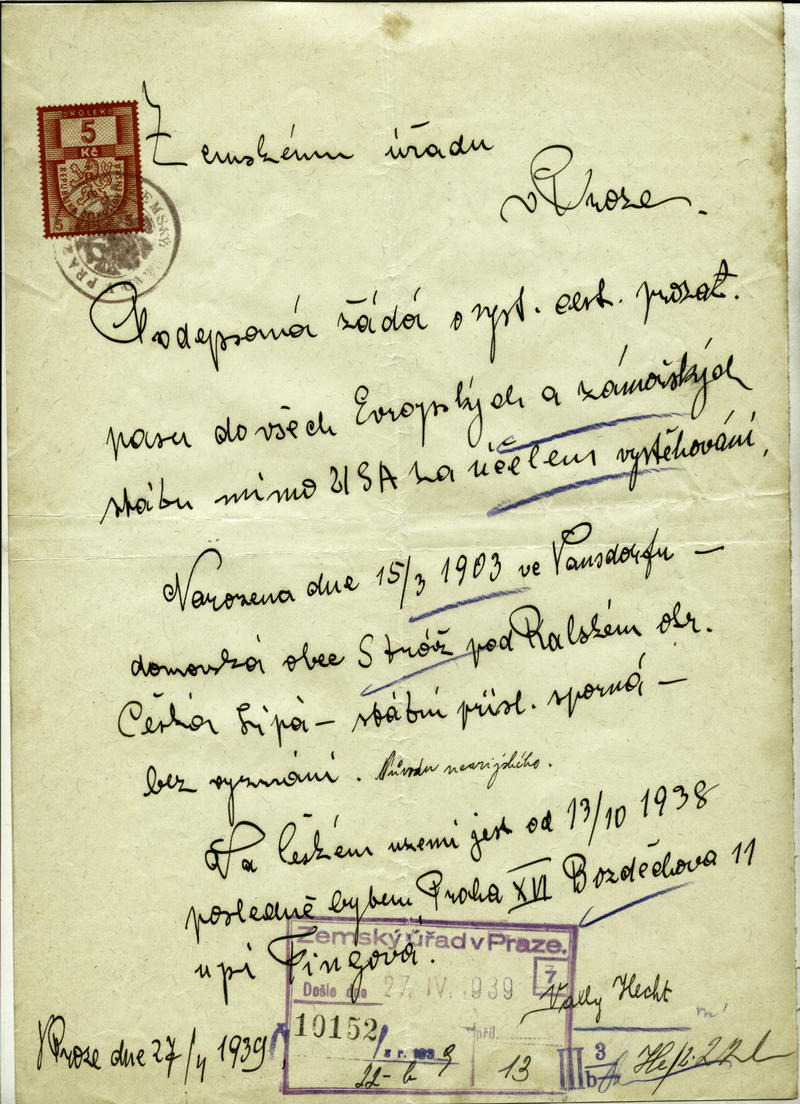 KOLEK
5
Kč
Zemskému úřadu
v Praze.
Podepsaná žádá o vyst. cest. prozat.
pasu do všech Evropských a zámořských
státu mimo USA za účelem vystěhování,
Narozena dne 15/3 1903 ve Varnsdorfu –
domovská obec Stráž pod Ralskem okr.
Česká Lípa – státní přísl. sporná –
bez vyznání. Původu nearijského.
Na českém uzemi jest od 13/10 1938
posledně bytem Praha XVI Bozděchova 11
u pí Fingová.
Zemský úřad v Praze.
7
Došlo dne 27. IV. 1939
10152
z r. 1939
22-6
příl.
13
Vally Hecht
V Praze dne 27/4 1939
III 3
b